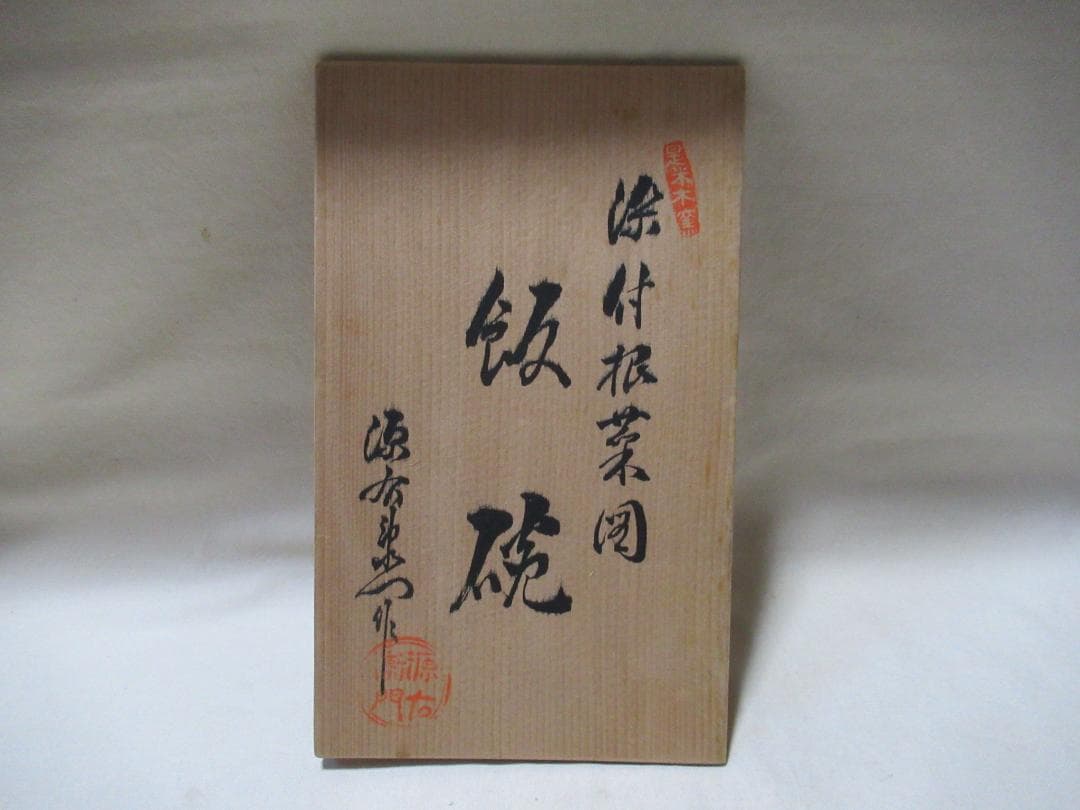 是米木窯
染付根菜図
飯碗
源右衛門作
源右衛門